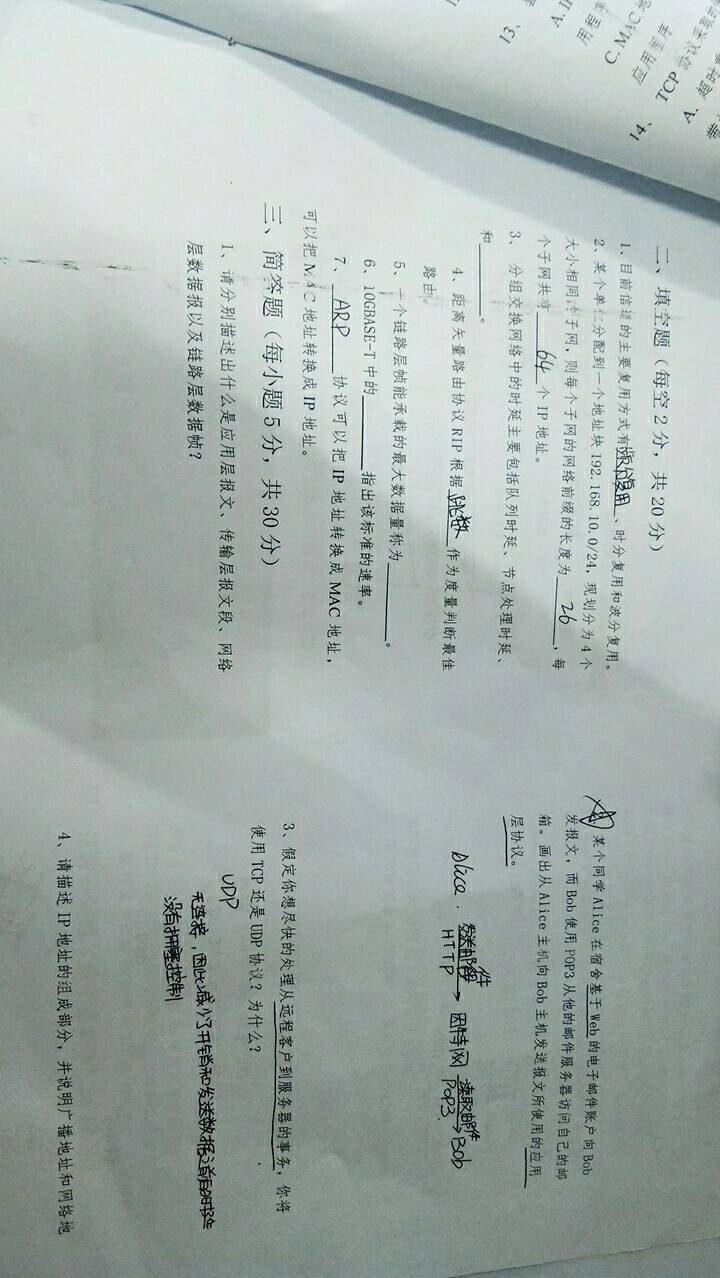 13、
用程序
C. MAC地
应用程序
14、 TCP 协议采取的
A. 超时重
二、填空题（每空 2 分，共 20 分）
1、目前信道的主要复用方式有频分复用、时分复用和波分复用。
2、某个单位分配到一个地址块 192.168.10.0/24，现划分为 4 个
大小相同的子网，则每个子网的网络前缀的长度为 26，每
个子网共有 64 个 IP 地址。
3、 分组交换网络中的时延主要包括队列时延、节点处理时延、
和______。
4、距离矢量路由协议 RIP 根据跳数作为度量判断最佳
路由。
5、一个链路层帧能承载的最大数据量称为______。
6、10GBASE-T 中的______指出该标准的速率。
7、ARP 协议可以把 IP 地址转换成 MAC 地址，
可以把 MAC 地址转换成 IP 地址。
三、简答题（每小题 5 分，共 30 分）
1、请分别描述出什么是应用层报文、传输层报文段、网络
层数据报以及链路层数据帧？
某个同学 Alice 在宿舍基于 Web 的电子邮件账户向 Bob
发报文，而 Bob 使用 POP3 从他的邮件服务器访问自己的邮
箱。画出从 Alice 主机向 Bob 主机发送报文所使用的应用
层协议。
Alice 发送邮件 HTTP → 因特网 读取邮件 POP3 → Bob
3、假定你想尽快的处理从远程客户到服务器的事务，你将
使用 TCP 还是 UDP 协议？为什么？
UDP
无连接，因此减少了开销和发送数据之前的时延
没有拥塞控制
4、请描述 IP 地址的组成部分，并说明广播地址和网络地